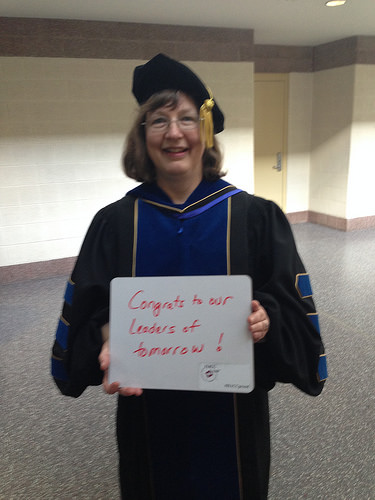 Congrats to our
leaders of
tomorrow !